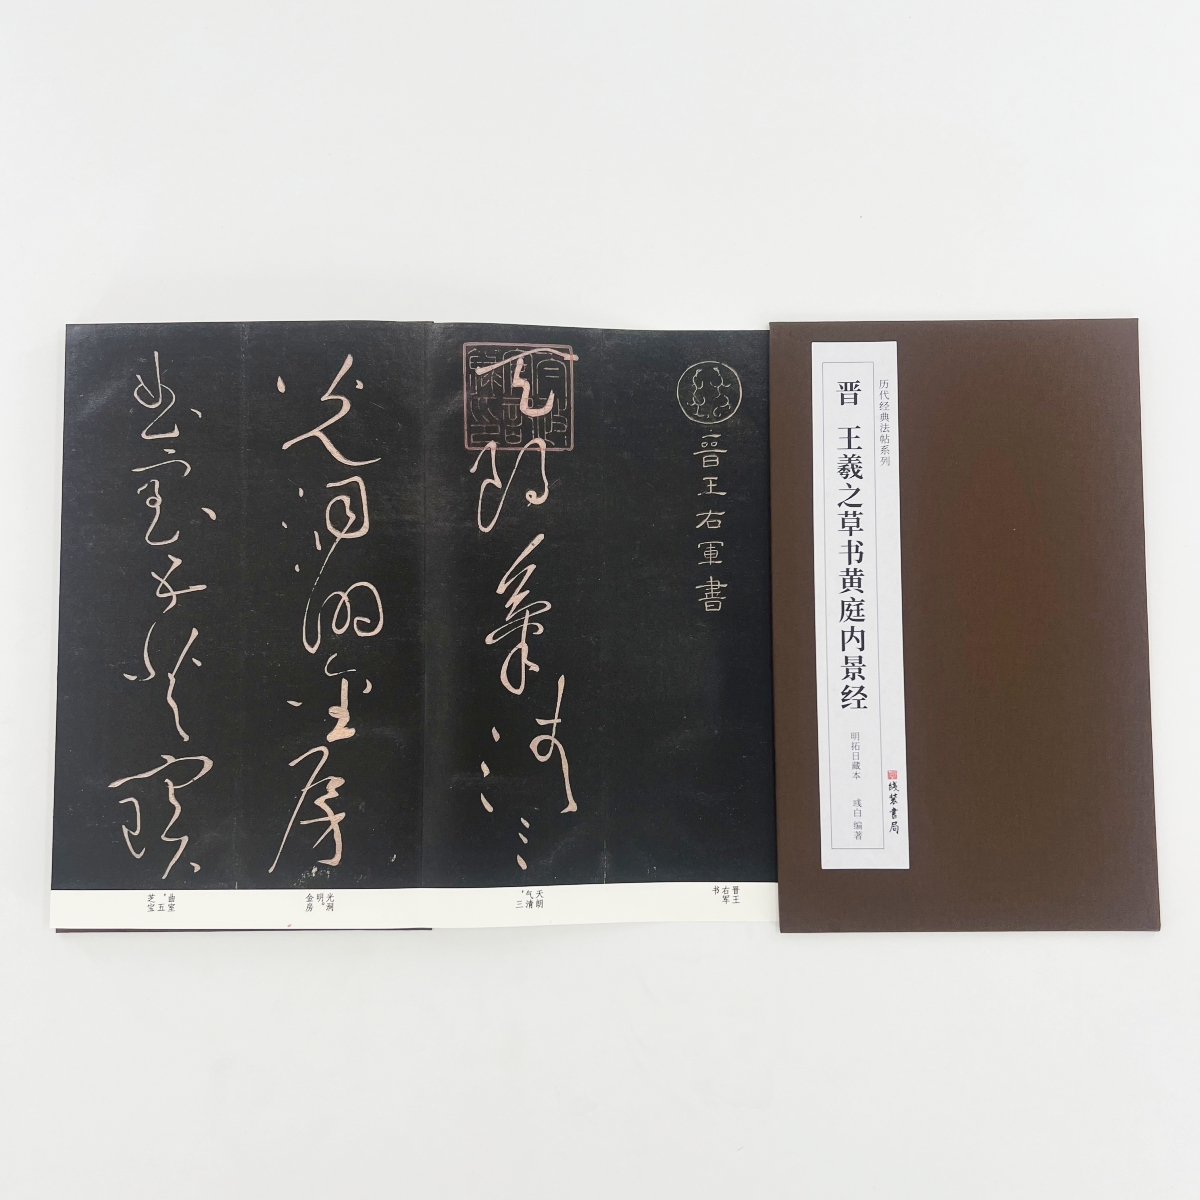 历代经典法帖系列
晋 王羲之草书黄庭内景经
明拓日藏本 彧白 编著
线装書局
晋王右軍書
天朗氣清三
光洞明金房
曲室五芝寶
晋王
右军
书
天朗
气清
，三
光洞
明。
金房
曲室
，五
芝宝